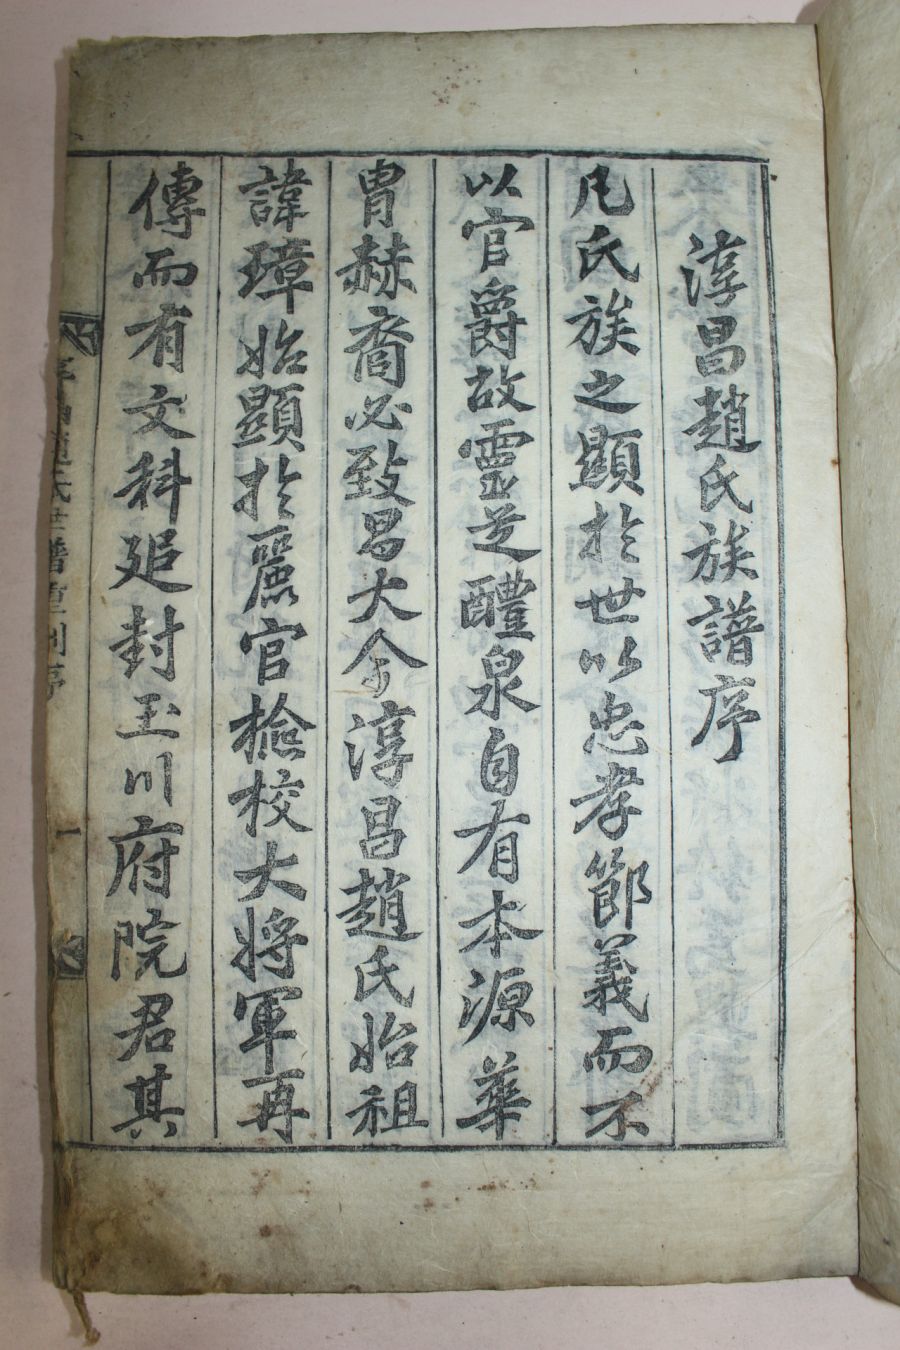 淳昌趙氏族譜序
凡氏族之顯於世以忠孝節義而不
以官爵故靈芝醴泉自有本源華
胄赫裔必致昌大今淳昌趙氏始祖
諱璋始顯於麗官檢校大將軍再
傳而有文科廷封玉川府院君其
淳昌趙氏世譜重刊序
一